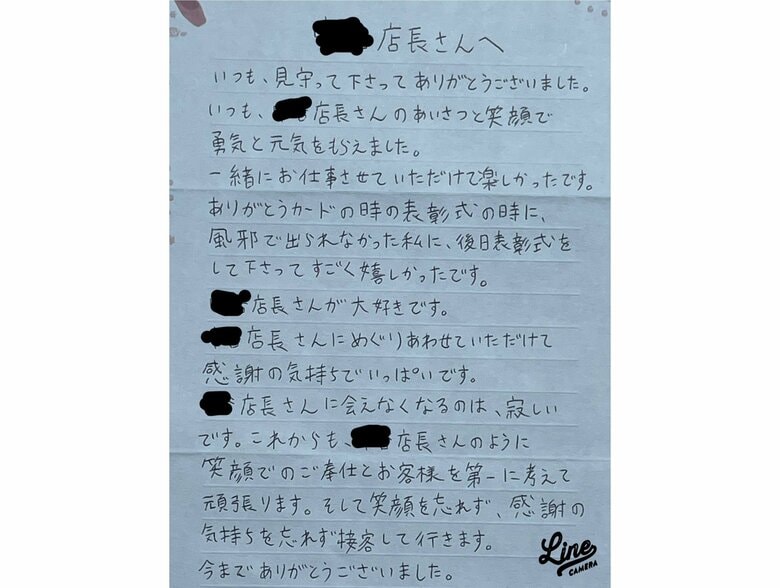 店長さんへ
いつも、見守って下さってありがとうございました。
いつも、店長さんのあいさつと笑顔で
勇気と元気をもらえました。
一緒にお仕事させていただけて楽しかったです。
ありがとうカードの時の表彰式の時に、
風邪で出られなかった私に、後日表彰式を
して下さってすごく嬉しかったです。
店長さんが大好きです。
店長さんにめぐりあわせていただけて
感謝の気持ちでいっぱいです。
店長さんに会えなくなるのは、寂しい
です。これからも、店長さんのように
笑顔でのご奉仕とお客様を第一に考えて
頑張ります。そして笑顔を忘れず、感謝の
気持ちを忘れず接客して行きます。
今までありがとうございました。
Line
CAMERA